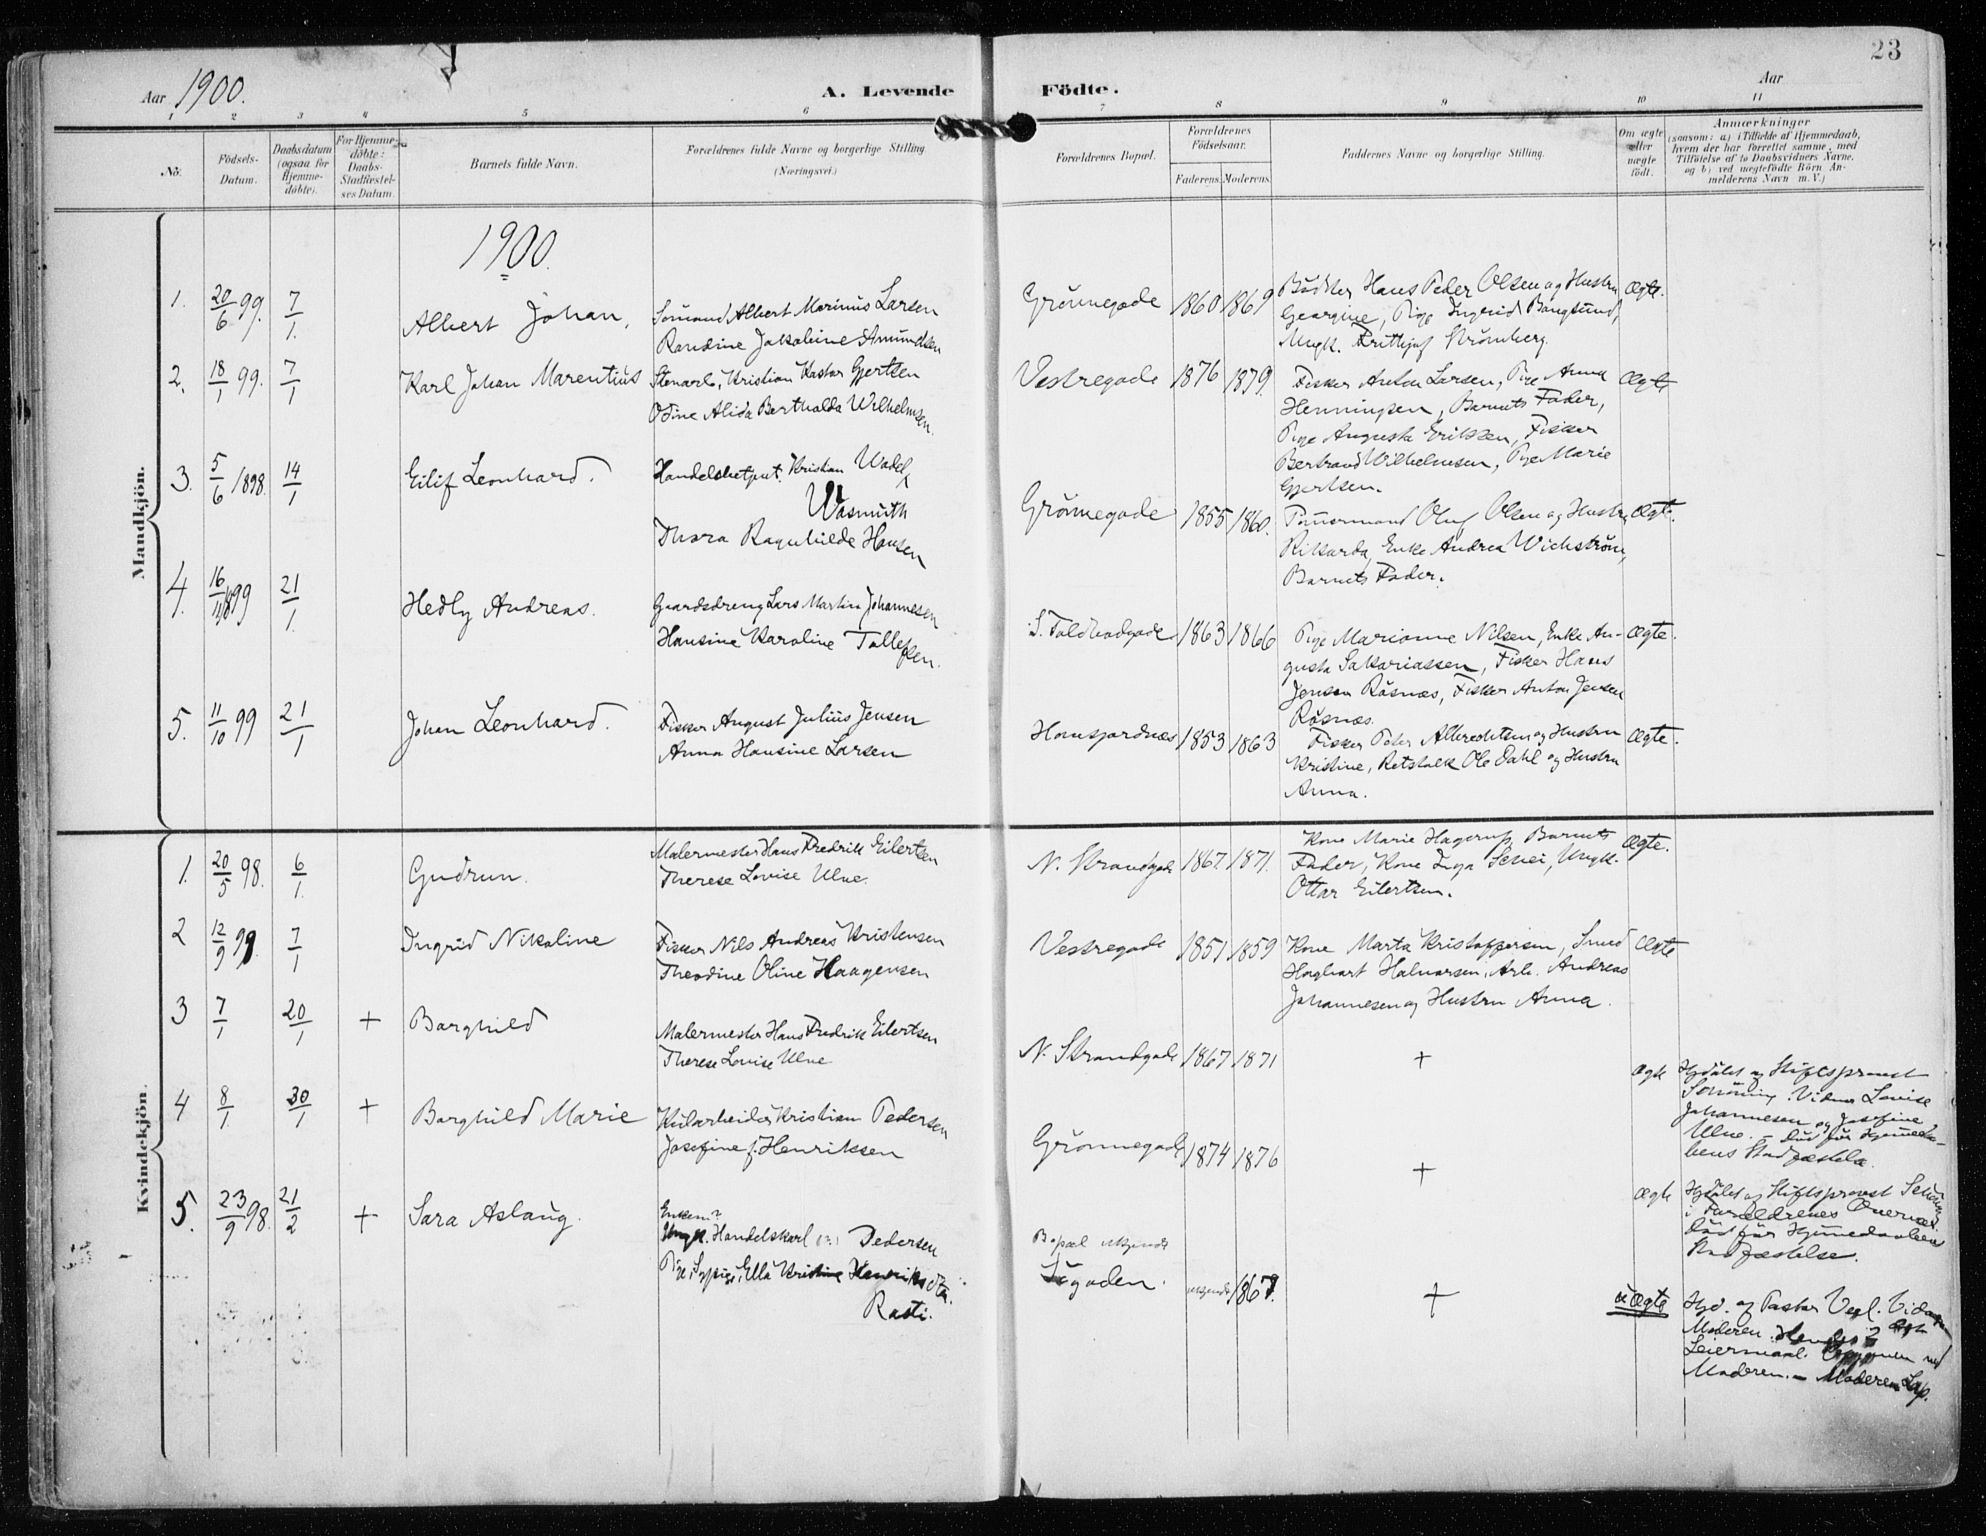 23
Aar 1900.
A. Levende Födte.
Aar
1 2 3 4 5 6 7 8 9 10 11
No.
Födsels-
Datum.
Daabsdatum
(ogsaa for
Hjemme-
døbte).
For Hjemme-
døbte:
Daabs-
Stadfæstel-
ses Datum.
Barnets fulde Navn.
Forældrenes fulde Navne og borgerlige Stilling
(Næringsvei.)
Forældrenes Bopæl.
Forældrenes
Födselsaar.
Faderens. Moderens.
Faddernes Navne og borgerlige Stilling.
Om ægte
eller
uægte
födt.
Anmærkninger
(saasom: a) i Tilfælde af Hjemmedaab,
hvem der har forrettet samme, med
Tilföielse af to Daabsvidners Navne,
og b) ved uægtefödte Börn An-
melderens Navn m. V.)
Mandkjön.
1900.
1. 20/6 99. 7/1. Albert Johan.
Sömand Albert Marinus Larsen
Randine Jakobine Amundsen
Grönnegade 1860 1869
Bödker Hans Peder Olsen og Hustru
Georgine, Pige Ingrid Bangsund,
Ungk. Frithjof Strömberg.
Ægte.
2. 18/1 99. 7/1 Karl Johan Marentius
Stenarb. Kristian Kastor Gjertsen
Odine Alida Berthalda Wilhelmsen.
Vestregade 1876 1879.
Fisker Anton Larsen, Pige Anna
Henningsen, Barnets Fader,
Pige Augusta Eriksen, Fisker
Bertrand Wilhelmsen, Pige Marie
Gjertsen.
Ægte
3. 5/6 1898. 14/1 Eilif Leonhard.
Handelsbetjent Kristian Wadel
Wasmuth
Thora Ragnhilde Hansen
Grönnegade 1855 1860.
Tömmermand Oluf Olsen og Hustru
Rikarda, Enke Andrea Wichström,
Barnets Fader.
Ægte.
4. 16/11 1899 21/1. Hedly Andreas.
Gaardsdreng Lars Martin Johannesen
Hansine Karoline Tollefsen.
S. Toldbodgade 1863 1866
Pige Marianne Nilsen, Enke Au-
gusta Sakariassen, Fisker Hans
Jensen Rösnæs, Fisker Anton Jensen
Rösnæs.
Ægte.
5. 11/10 99 21/1 Johan Leonhard.
Fisker August Julius Jensen
Anna Hansine Larsen
1853 1863
Fisker Peter Albrechtsen og Hustru
Kristine, Retstolk Ole Dahl og Hustru
Anna.
Ægte.
Kvindekjön.
1. 20/5 98. 6/1. Gudrun.
Malermester Hans Fredrik Eilertsen
Therese Lovise Ulve.
N. Strandgade 1867. 1871.
Kone Marie Hagerup, Barnets
Fader, Kone Inga Schei, Ungk.
Ottar Eilertsen.
Ægte.
2 12/9 99. 7/1 Ingrid Nikoline
Fisker Nils Andreas Kristensen
Theodine Oline Haagensen
Vestregade 1851 1859
Kone Marta Kristoffersen, Smed
Hagbart Halvorsen, Arb. Andreas
Johannesen og Hustru Anna.
Ægte
3 7/1 20/1 + Borghild
Malermester Hans Fredrik Eilertsen
Therese Lovise Ulve
N. Strandgade 1867 1871
+
Ægte
Hjdöbt af Stiftsprovst
Schöning. Vidner Lovise
Johannesen og Josefine
Ulve. – Död för Hjemmedaa-
bens Stadfæstelse.
4 8/1. 30/1 + Borghild Marie
Kularbeider Kristian Pedersen
Josefine f. Henriksen
Grönnegade 1874 1876
+
Ægte
Hjdöbt af Stiftsprovst Schöning
i Forældrenes Overvær.
Död för Hjemmedaabens
Stadfæstelse.
5. 23/9 98. 21/2 + Sara Aslaug.
Enkem?
Ungk. Handelskarl Pedersen
Pige, Sypige, Ella Kristine Henriksdtr.
Rasti.
Bopæl ubekjendt
Sögaden.
ubekjendt 1867.
+
uægte
Hjd. af Pastor Vogl.
Moderen.
Leiermaal. Opgiven ved
Moderen. – Moderen Lap.